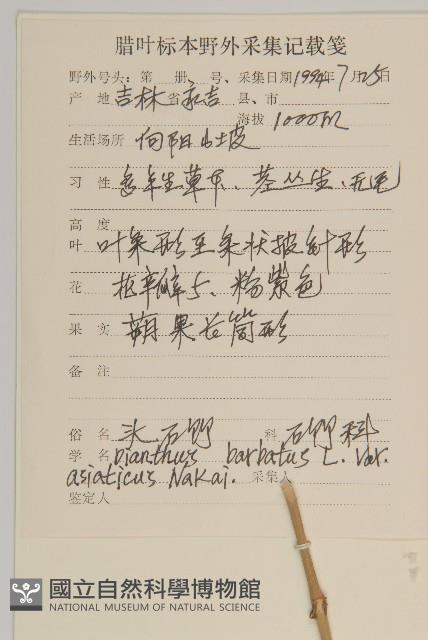 腊叶标本野外采集记载笺
野外号头: 第 册 号、采集日期1994年7月25日
产 地 吉林省永吉 县、市
海拔 1000m
生活场所 向阳山坡
习 性 多年生草本、茎丛生、无毛
高 度
叶 叶条形至条状披针形
花 花辛瓣5、粉紫色
果 实 蒴果长筒形
备 注
俗 名 头石竹 科 石竹科
学 名 Dianthus barbatus L. Var.
asiaticus Nakai. 采集人
鉴定人
國立自然科學博物館
NATIONAL MUSEUM OF NATURAL SCIENCE